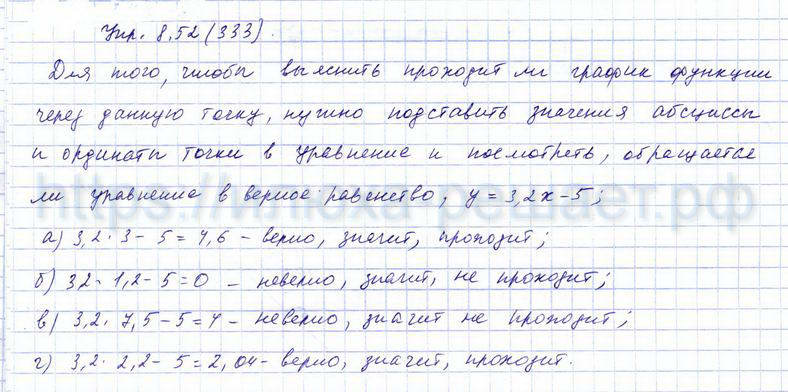 Упр. 8.52 (333).
Для того, чтобы выяснить проходит ли график функции
через данную точку, нужно подставить значения абсциссы
и ординаты точки в уравнение и посмотреть, обращается
ли уравнение в верное равенство, y = 3,2x - 5;
а) 3,2 · 3 - 5 = 4,6 - верно, значит, проходит;
б) 32 · 1,2 - 5 = 0 - неверно, значит, не проходит;
в) 3,2 · 7,5 - 5 = 4 - неверно, значит не проходит;
г) 3,2 · 2,2 - 5 = 2,04 - верно, значит, проходит.